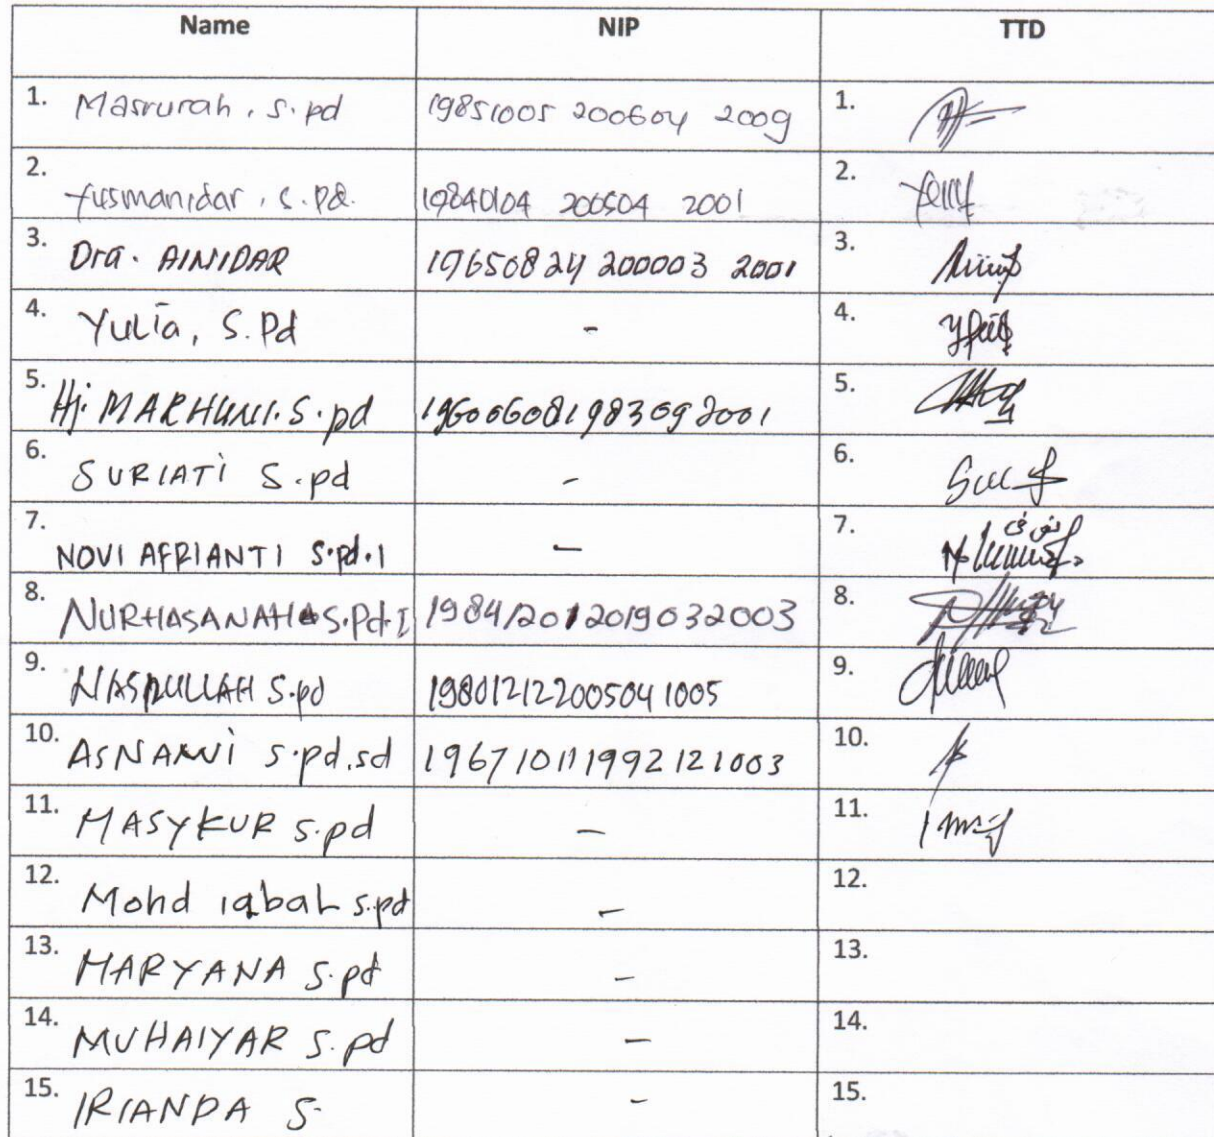 Name NIP TTD
1. Masrurah, S.pd 19851005 200604 2009 1.
2. Yusmanidar, S.Pd. 19840104 200504 2001 2.
3. Dra. AINIDAR 19650824 200003 2001 3.
4. Yulia, S.Pd - 4.
5. Hj. MARHUNI. S.pd 196006081983092001 5.
6. SURIATI S.pd - 6.
7. NOVI AFRIANTI S.pd.I - 7.
8. NURHASANAH S.Pd.I 198412012019032003 8.
9. NASRULLAH S.pd 198012122005041005 9.
10. ASNAWI S.pd.sd 196710111992121003 10.
11. MASYKUR S.pd - 11.
12. Mohd iqbal S.pd - 12.
13. MARYANA S.pd - 13.
14. MUHAIYAR S.pd - 14.
15. IRIANDA S. - 15.